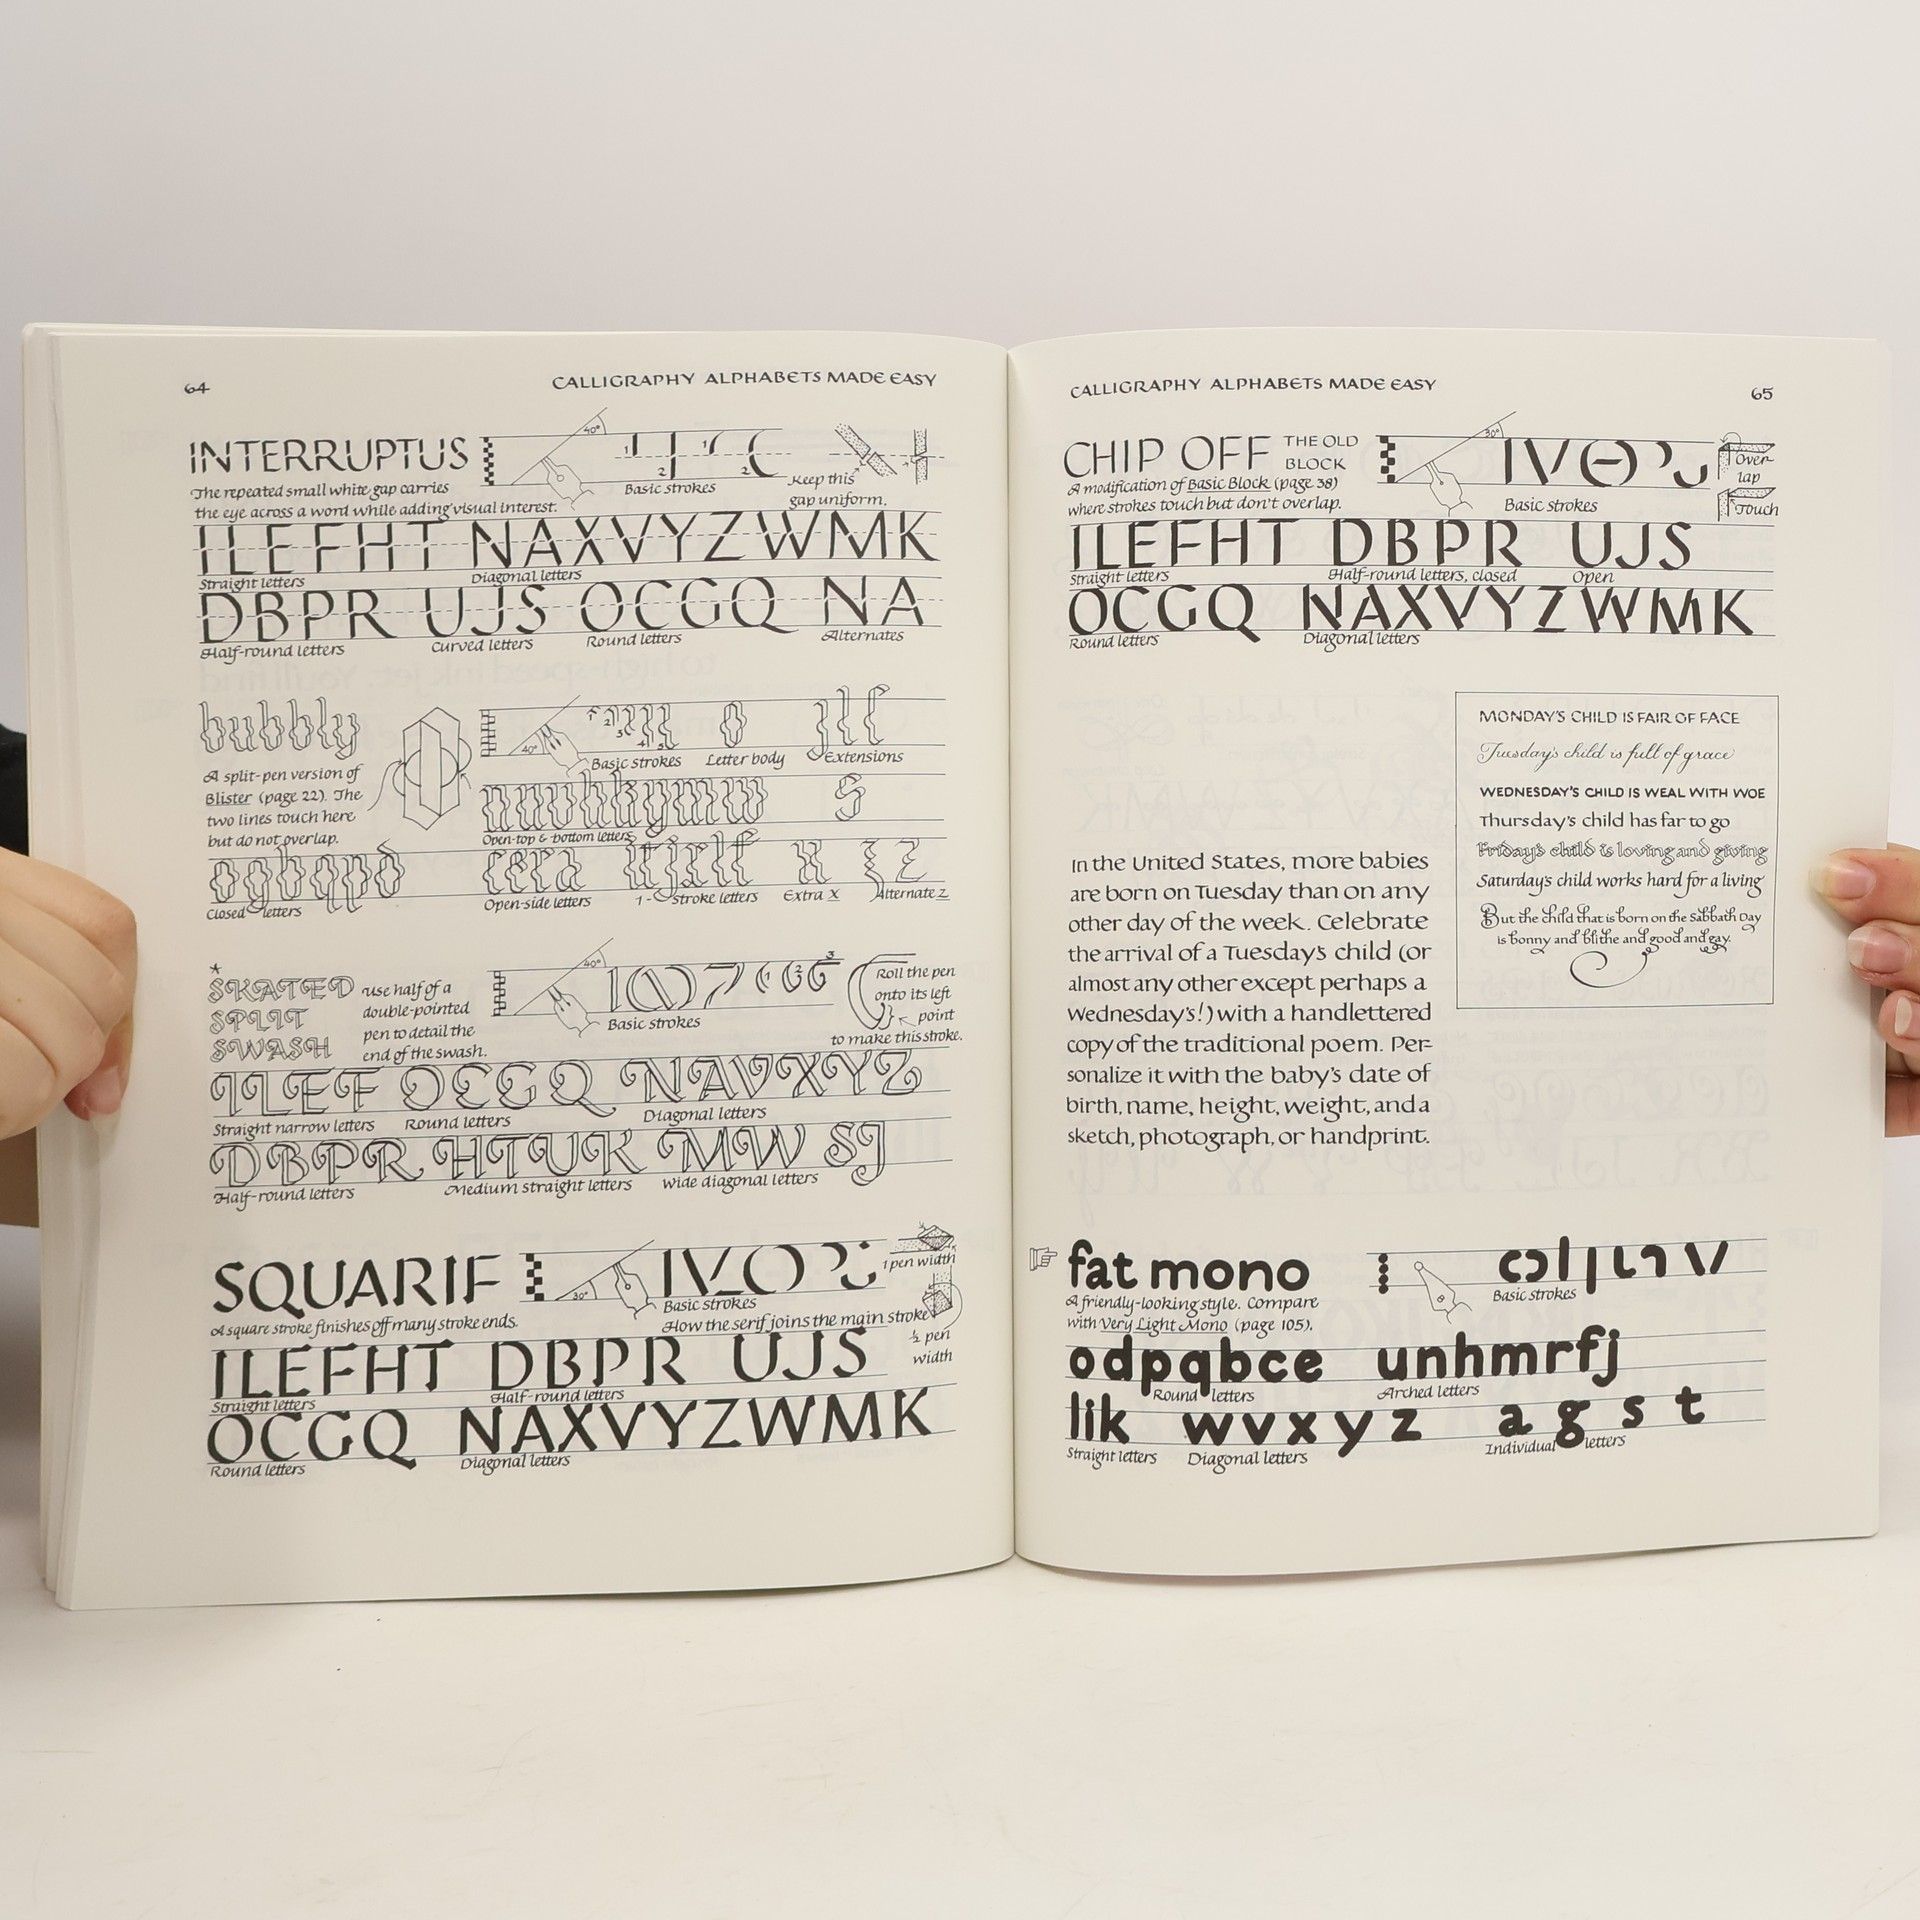 64
CALLIGRAPHY ALPHABETS MADE EASY
INTERRUPTUS
40°
1
2
1
2
Basic strokes
Keep this
gap uniform.
The repeated small white gap carries
the eye across a word while adding visual interest.
ILEFHT NAXVYZWMK
Straight letters
Diagonal letters
DBPR UJS OCGQ NA
Half-round letters
Curved letters
Round letters
Alternates
bubbly
40°
Basic strokes
Letter body
Extensions
A split-pen version of
Blister (page 22). The
two lines touch here
but do not overlap.
nuvhkymw s
Open-top & bottom letters
ogbqpd cera itjrlf x z z
Closed letters
Open-side letters
1-Stroke letters
Extra x
Alternate z
*
SKATED
SPLIT
SWASH
use half of a
double-pointed
pen to detail the
end of the swash.
40°
Basic strokes
1
2
3
Roll the pen
onto its left
point
to make this stroke.
ILEF OCGQ NAVXYZ
Straight narrow letters
Round letters
Diagonal letters
DBPR HTUK MW SJ
Half-round letters
Medium straight letters
Wide diagonal letters
SQUARIF
30°
Basic strokes
1 pen width
A square stroke finishes off many stroke ends.
How the serif joins the main stroke
½ pen
width
ILEFHT DBPR UJS
Straight letters
Half-round letters
OCGQ NAXVYZWMK
Round letters
Diagonal letters
CALLIGRAPHY ALPHABETS MADE EASY
65
CHIP OFF THE OLD
BLOCK
30°
Basic strokes
Over-
lap
Touch
A modification of Basic Block (page 38)
where strokes touch but don't overlap.
ILEFHT DBPR UJS
Straight letters
Half-round letters, closed
Open
OCGQ NAXVYZWMK
Round letters
Diagonal letters
MONDAY'S CHILD IS FAIR OF FACE
Tuesday's child is full of grace
WEDNESDAY'S CHILD IS WEAL WITH WOE
Thursday's child has far to go
Friday's child is loving and giving
Saturday's child works hard for a living
But the child that is born on the Sabbath Day
is bonny and blithe and good and gay.
In the United States, more babies
are born on Tuesday than on any
other day of the week. Celebrate
the arrival of a Tuesday's child (or
almost any other except perhaps a
Wednesday's!) with a handlettered
copy of the traditional poem. Per-
sonalize it with the baby's date of
birth, name, height, weight, and a
sketch, photograph, or handprint.
fat mono
Basic strokes
A friendly-looking style. Compare
with Very Light Mono (page 105).
odpqbce unhmrfj
Round letters
Arched letters
lik wvxyz agst
Straight letters
Diagonal letters
Individual letters